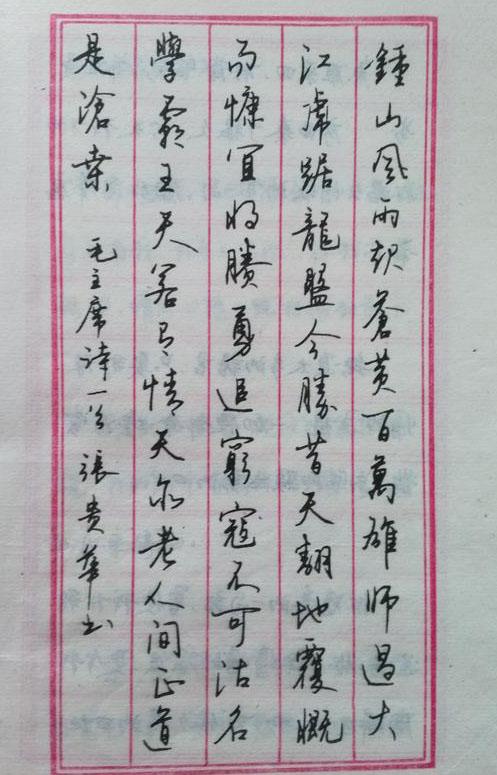 鍾山風雨起蒼黄百萬雄师過大
江虎踞龍盤今勝昔天翻地覆慨
而慷宜将賸勇追窮寇不可沽名
學霸王天若有情天亦老人间正道
是滄桒 毛主席诗一首 張贵華书